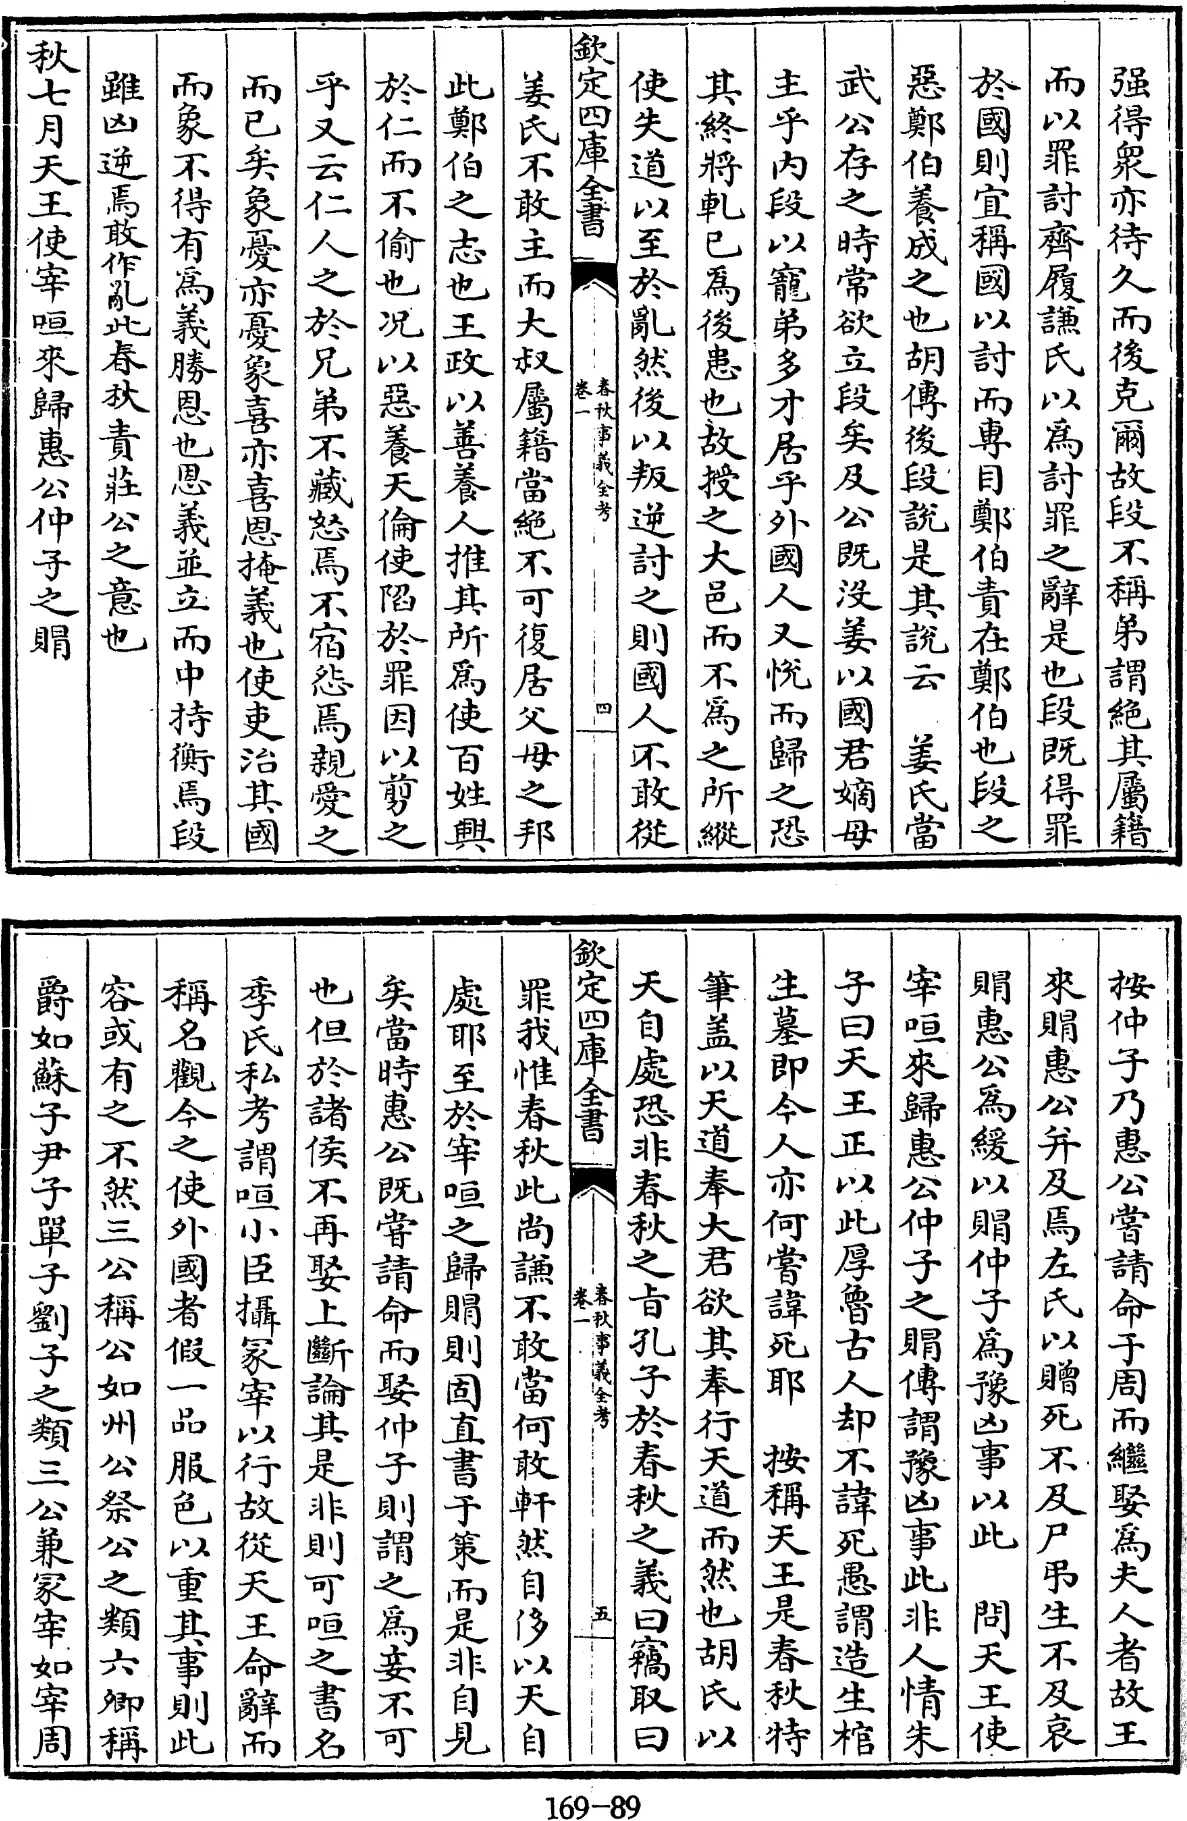 强得衆亦待久而後克爾故段不稱弟謂絶其屬籍
而以罪討齊履謙氏以爲討罪之辭是也段既得罪
於國則宜稱國以討而專目鄭伯責在鄭伯也段之
惡鄭伯養成之也胡傳後段說是其說云　姜氏當
武公存之時常欲立段矣及公既没姜以國君嫡母
主乎内段以寵弟多才居乎外國人又悦而歸之恐
其終將軋已爲後患也故授之大邑而不爲之所縱
使失道以至於亂然後以叛逆討之則國人不敢從
欽定四庫全書
春秋事義全考
卷一
四
姜氏不敢主而大叔屬籍當絶不可復居父母之邦
此鄭伯之志也王政以善養人推其所爲使百姓興
於仁而不偷也况以惡養天倫使陷於罪因以剪之
乎又云仁人之於兄弟不藏怒焉不宿怨焉親愛之
而已矣象憂亦憂象喜亦喜恩掩義也使吏治其國
而象不得有爲義勝恩也恩義並立而中持衡焉段
雖凶逆焉敢作亂此春秋責莊公之意也
秋七月天王使宰咺來歸惠公仲子之賵
按仲子乃惠公嘗請命于周而繼娶爲夫人者故王
來賵惠公并及焉左氏以贈死不及尸弔生不及哀
賵惠公爲緩以賵仲子爲豫凶事以此　問天王使
宰咺來歸惠公仲子之賵傳謂豫凶事此非人情朱
子曰天王正以此厚魯古人却不諱死愚謂造生棺
生墓即今人亦何嘗諱死耶　按稱天王是春秋特
筆盖以天道奉大君欲其奉行天道而然也胡氏以
天自處恐非春秋之旨孔子於春秋之義曰竊取曰
欽定四庫全書
春秋事義全考
卷一
五
罪我惟春秋此尚謙不敢當何敢軒然自侈以天自
處耶至於宰咺之歸賵則固直書于策而是非自見
矣當時惠公既嘗請命而娶仲子則謂之爲妾不可
也但於諸侯不再娶上斷論其是非則可咺之書名
季氏私考謂咺小臣攝冢宰以行故從天王命辭而
稱名觀今之使外國者假一品服色以重其事則此
容或有之不然三公稱公如州公祭公之類六卿稱
爵如蘇子尹子單子劉子之類三公兼冢宰如宰周
169-89